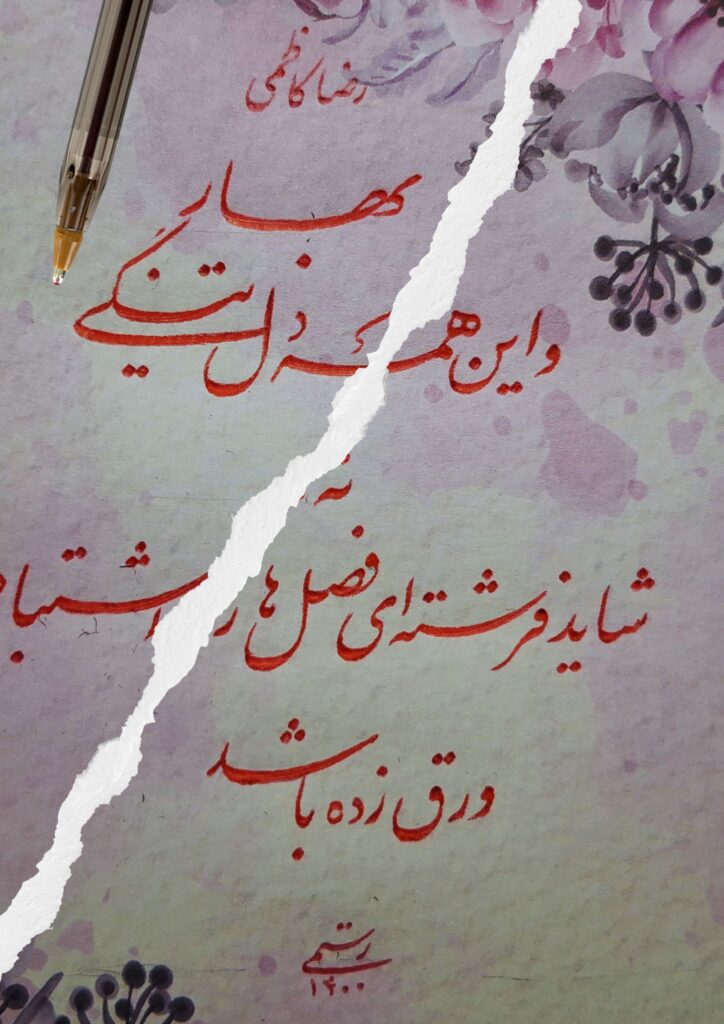 رضا کاظمی
بهار
و این همه دل تنگی
نه
شاید فرشته ای فصل ها را اشتباه
ورق زده باشد
رستمی
۱۴۰۰